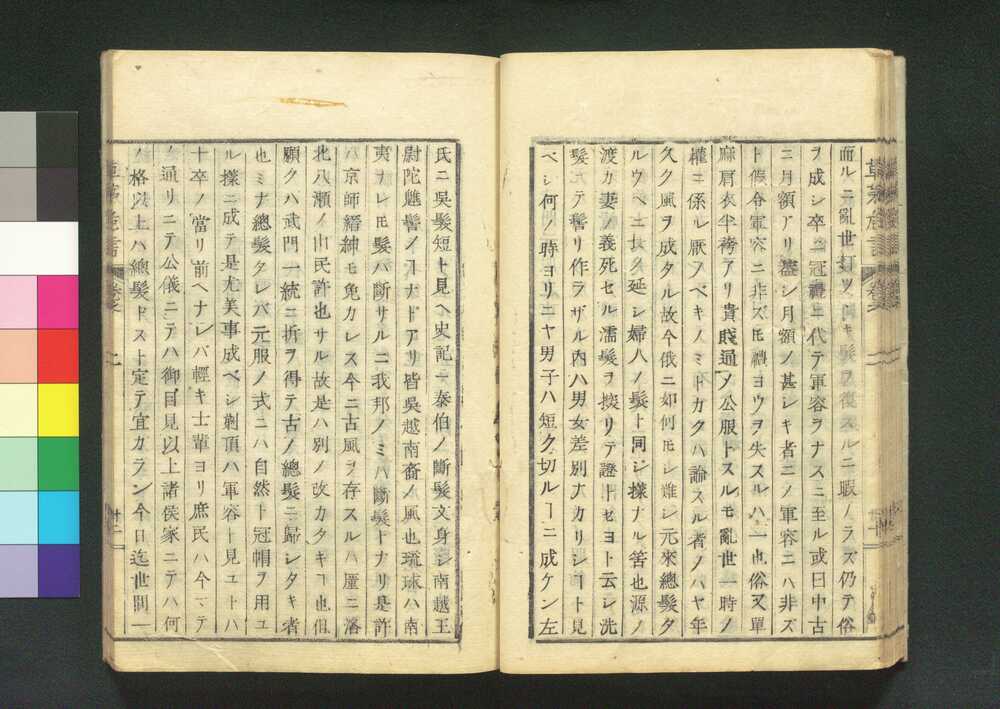 面ルニ亂世打ツヾキ髮ヲ復スルニ暇ノラズ仍テ俗
ヲ成シ卒ニ冠禮ニ代テ軍容ヲナスニ至ル或曰中古
ニ月額アリ蓋シ月額ノ甚シキ者ニノ軍容ニハ非ズ
ト假令軍容ニ非ズモ禮ヨウヲ失スルハ一也俗又單
麻肩衣半袴アリ貴賤通メ公服トスルモ亂世一時ノ
權ニ係ル厭フベキノミトカクハ論スル者ノハヤ年
久ク風ヲ成タル故今俄ニ如何モシ難シ元來總髮タ
ルウヘニ長ク延シ婦人ノ髮ト同シ樣ナル筈也源ノ
渡カ妻ノ義死セル濡髮ヲ探リテ證トセヨト云シ洗
髮ニテ髻リ作ラザル内ハ男女差別ナカリシヿト見
ベシ何ノ時ヨリニヤ男子ハ短ク切ルヿニ成ケン左
氏ニ吳髮短ト見ヘ史記ニ泰伯ノ斷髮文身シ南越王
尉陀魋髻ノヿナドアリ皆吳越南裔ノ風也琉球ハ南
夷ナレモ髮ハ斷サルニ我邦ノミハ斷髮トナリ是許
ハ京師縉紳モ免カレス今ニ古風ヲ存スルハ厪ニ洛
北八瀬ノ山民許也サル故是ハ別ノ改カタキヿ也但
願クハ武門一統ニ折ヲ得テ古ノ總髮ニ歸シタキ者
也ミナ總髮タレバ元服ノ式ニハ自然ト冠帽ヲ用ユ
ル樣ニ成テ是尤美事成ベシ剃頂ハ軍容ト見ユトハ
十卒ノ當リ前ヘナレバ輕キ士輩ヨリ庶民ハ今マテ
ノ通リニテ公儀ニテハ御目見以上諸侯家ニテハ何
ノ格以上ハ總髮トスト定テ宜カラン今日迄世間一